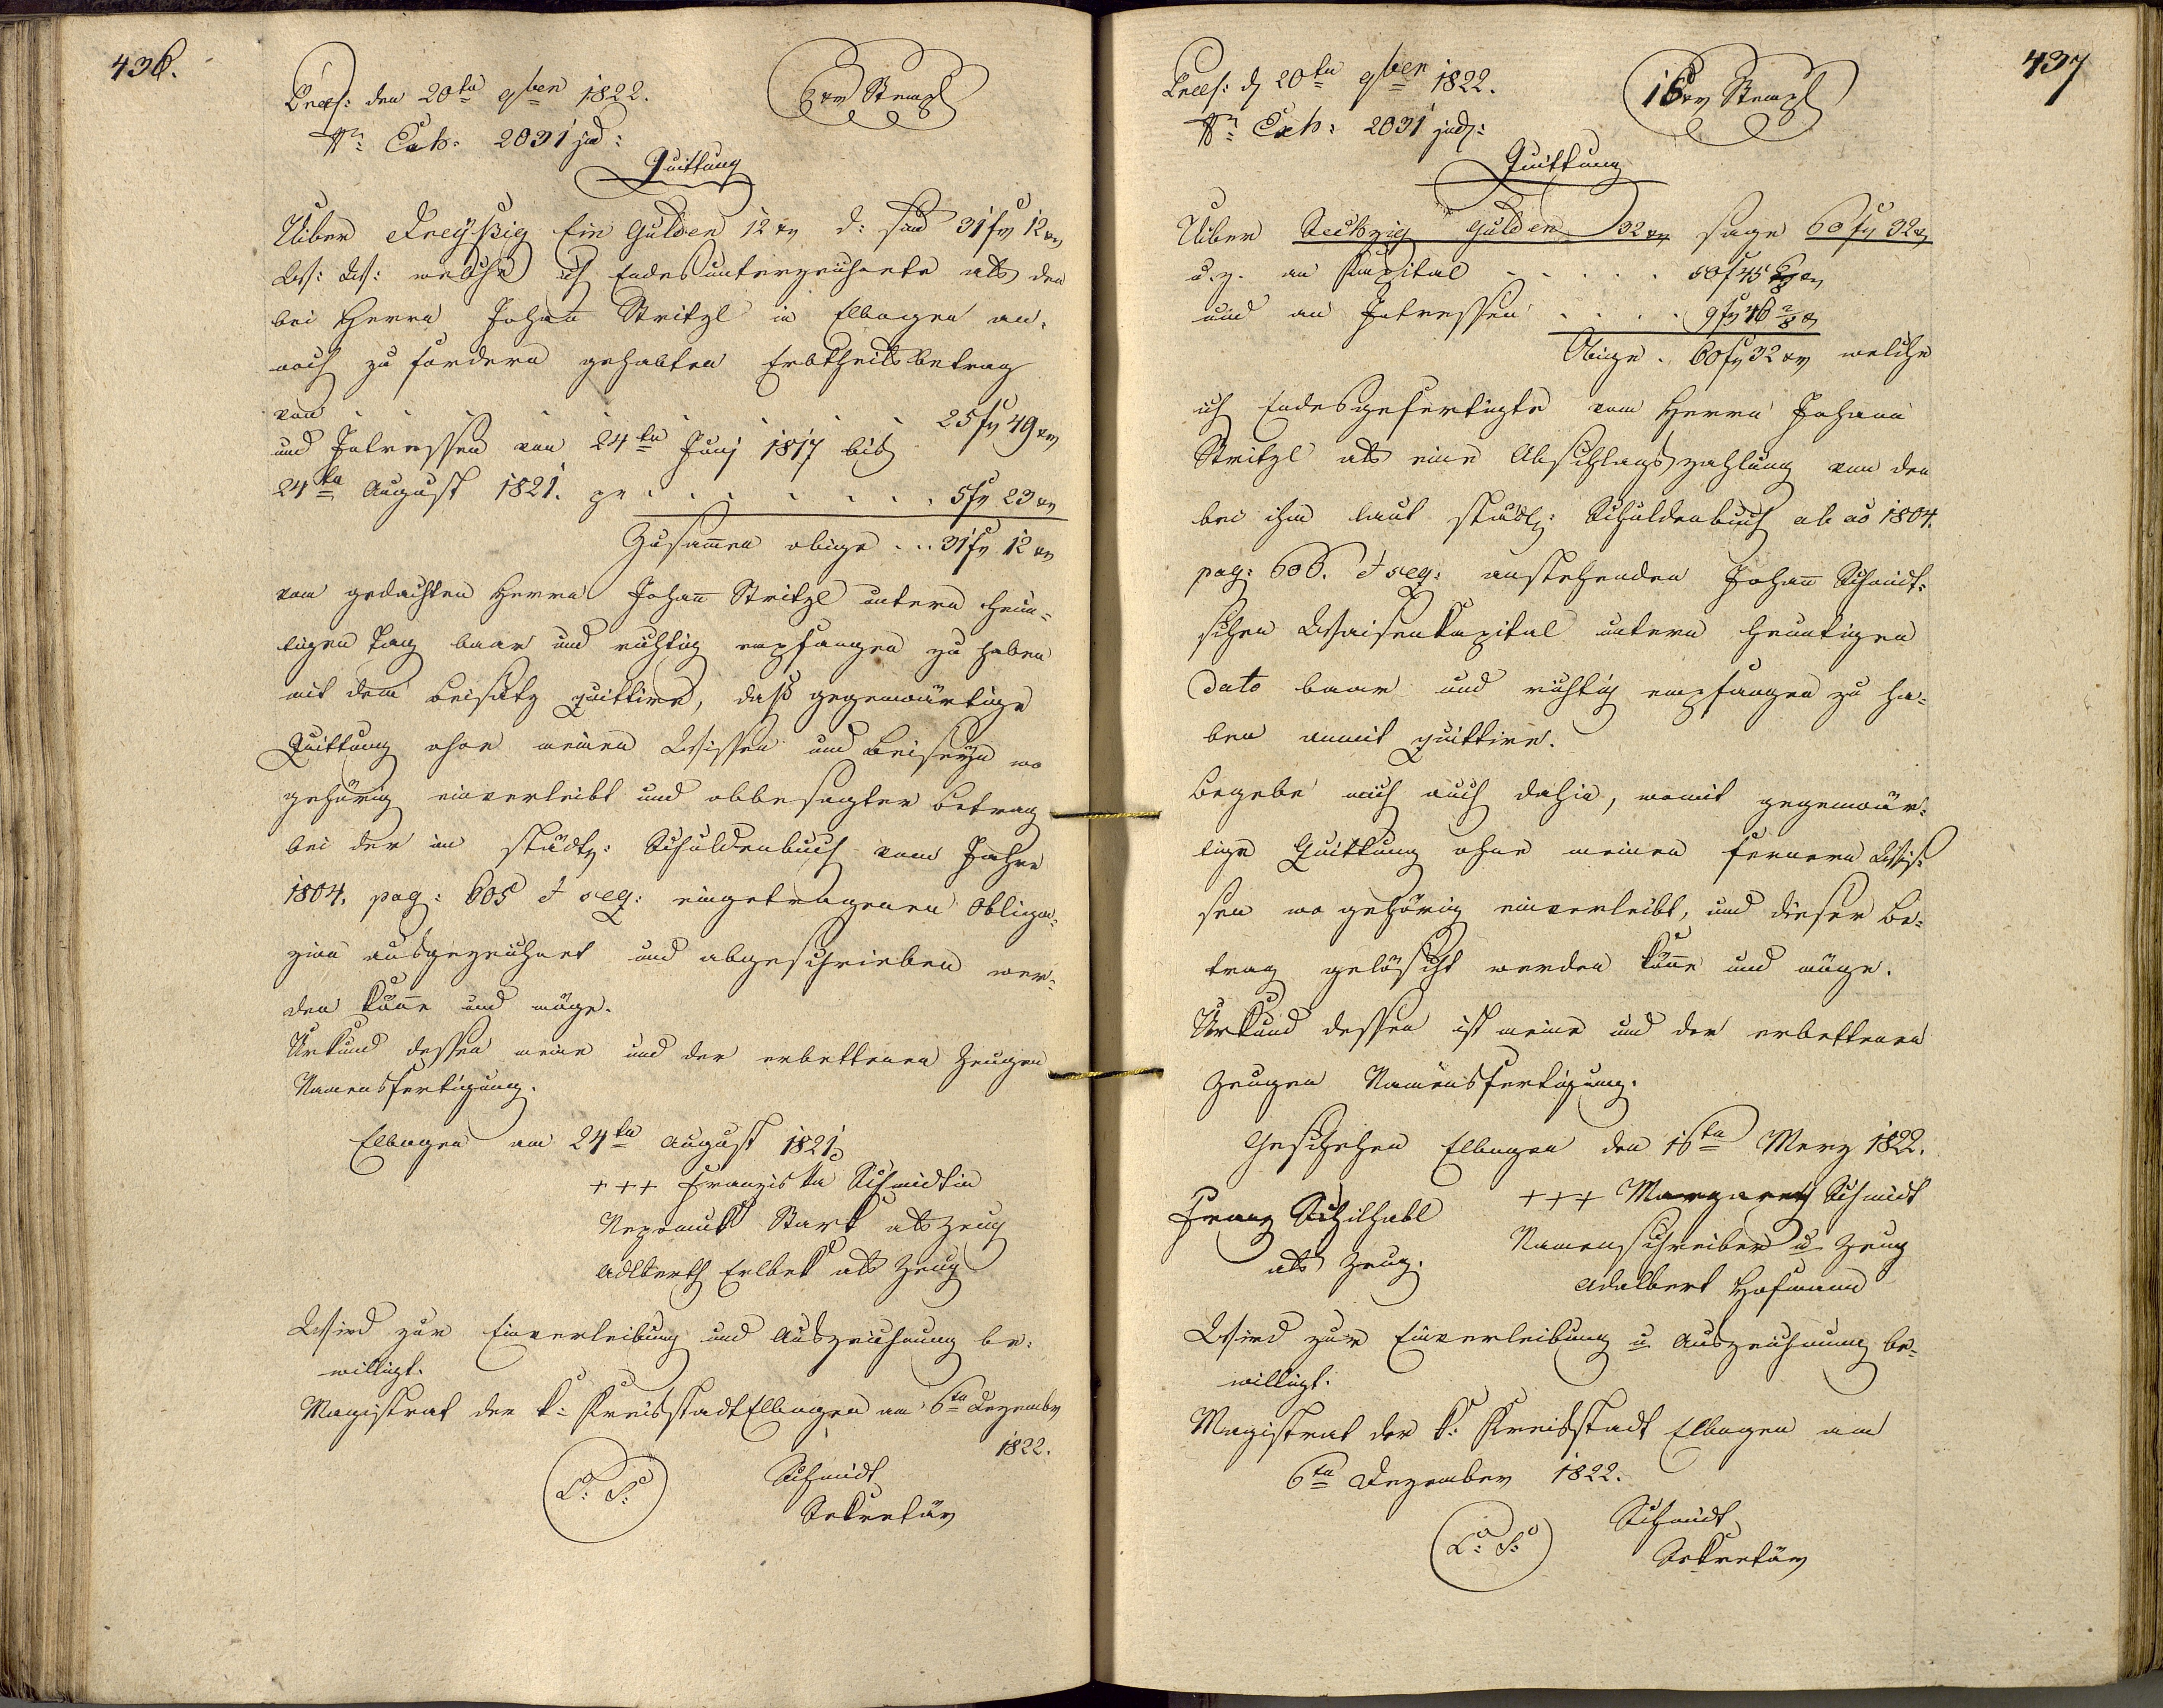 436.
Præs: den 20ten 9ber 1822.
6 xr Stempl
Nr: Exh: 2031 jud:
Quittung
Uiber Dreyßig Ein Gulden 12 xr d: sind 31 fr 12 xr
W: W: welche ich Endesunterzeichnete als den
bei Herrn Johan̄ Stritzl in Elbogen an-
noch zu fordern gehabten Erbtheilsbetrag
von . . . . . . . . 25 fr 49 xr
und Intressen von 24ten Junj 1817 bis
24ten August 1821. pr . . . . . . . 5 fr 23 xr
Zusam̄en obige . . . 31 fr 12 xr
vom gedachten Herrn Johan̄ Stritzl untern heun-
tigen Tag baar und richtig empfangen zu haben
mit dem Beisatz quittire, daß gegenwärtige
Quittung ohne meinen Wissen und Beiseyn wo
gehörig einverleibt und obbesagter Betrag
bei der im städt: Schuldenbuch vom Jahre
1804. pag: 605 et seq: eingetragenen Obliga-
zion ausgezeichnet und abgeschrieben wer-
den kön̄e und möge.
Urkund dessen meine und der erbettenen Zeugen
Namensfertigung.
Elbogen am 24ten August 1821.
+++ Franziska Schmidtin
Nepomuk Stark als Zeug
Adlberth Erlbek als Zeug
Wird zur Einverleibung und Auszeichnung be-
willigt.
Magistrat der k: Kreisstadt Elbogen am 6ten Dezember
1822.
L: S:
Schmidt
Sekretär
437
Præs: d 20ten 9ber 1822.
15 xr Stempl
Nr: Exh: 2031 jud:
Quittung
Uiber Sechzig Gulden 32 xr sage 60 fr 32 xr
u. z. an Kapital . . . . . 50 f 45 6/8 xr
und an Intressen . . . . 9 fr 46 2/8 xr
Obige . 60 fr 32 xr welche
ich Endesgefertigte vom Herrn Johann
Stritzl als eine Abschlagszahlung von den
bei ihm laut städt: Schuldenbuch ab ao 1804.
pag: 606. et seq: anstehenden Johan̄ Schmidt-
schen Waisenkapital untern heuntigen
Dato baar und richtig empfangen zu ha-
ben anmit quittire.
Begebe mich auch dahin, womit gegenwär-
tige Quittung ohne meinen fernern Wis-
sen wo gehörig einverleibt, und dieser Be-
trag gelöscht werden kön̄e und möge.
Urkund dessen ist meine und der erbettenen
Zeugen Namensfertigung.
Geschehen Elbogen den 16ten Merz 1822.
+++ Margareth Schmidt
Franz Schilhabl
Namenschreiber u Zeug
als Zeug.
Adalbert Hofmann
Wird zur Einverleibung u Auszeichnung be-
willigt.
Magistrat der k: Kreisstadt Elbogen am
6ten Dezember 1822.
L: S:
Schmidt
Sekretär